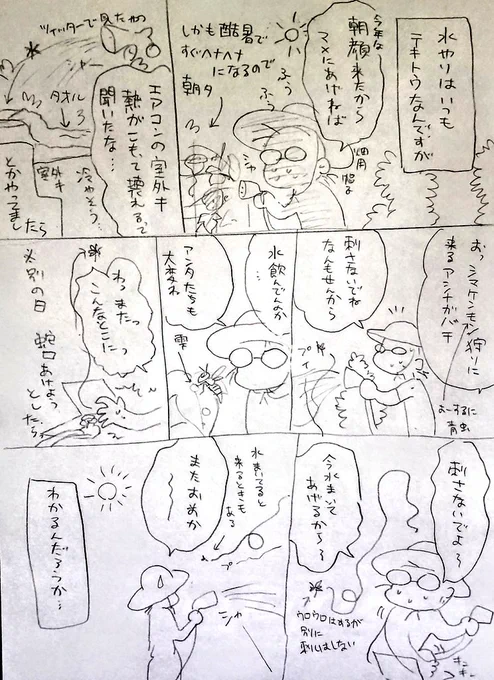 水やりはいつも
テキトウなんですが
今年な
朝顔来たから
マメにあげねば
ふぅ
ふぅ
畑用
帽子
しかも酷暑で
すぐヘナヘナ
になるので
朝夕
シャ
ツイッターで見たやつ
シャー
タオル
エアコンの室外キ
熱がこもって壊れるって
聞いたな…
冷やそう…
室外キ
とかやってまし
たら
おっ シマケンモン狩りに
来るアシナガバチ
よーするに
青虫
刺さないでね
なんもせんから
プイ
水飲んでんのか
…
アンタたちも
大変ね
雫
わっまたっ
こんなとこにっ
別の日
蛇口あけよう
としたら
刺さないでよ〜
今水まいて
あげるから〜
ウロウロはするが
別に
刺しはしない
キュ
キュー
水まいてると
来るときも
ある
プ
またお前か
シャ
わかるんだろうか…